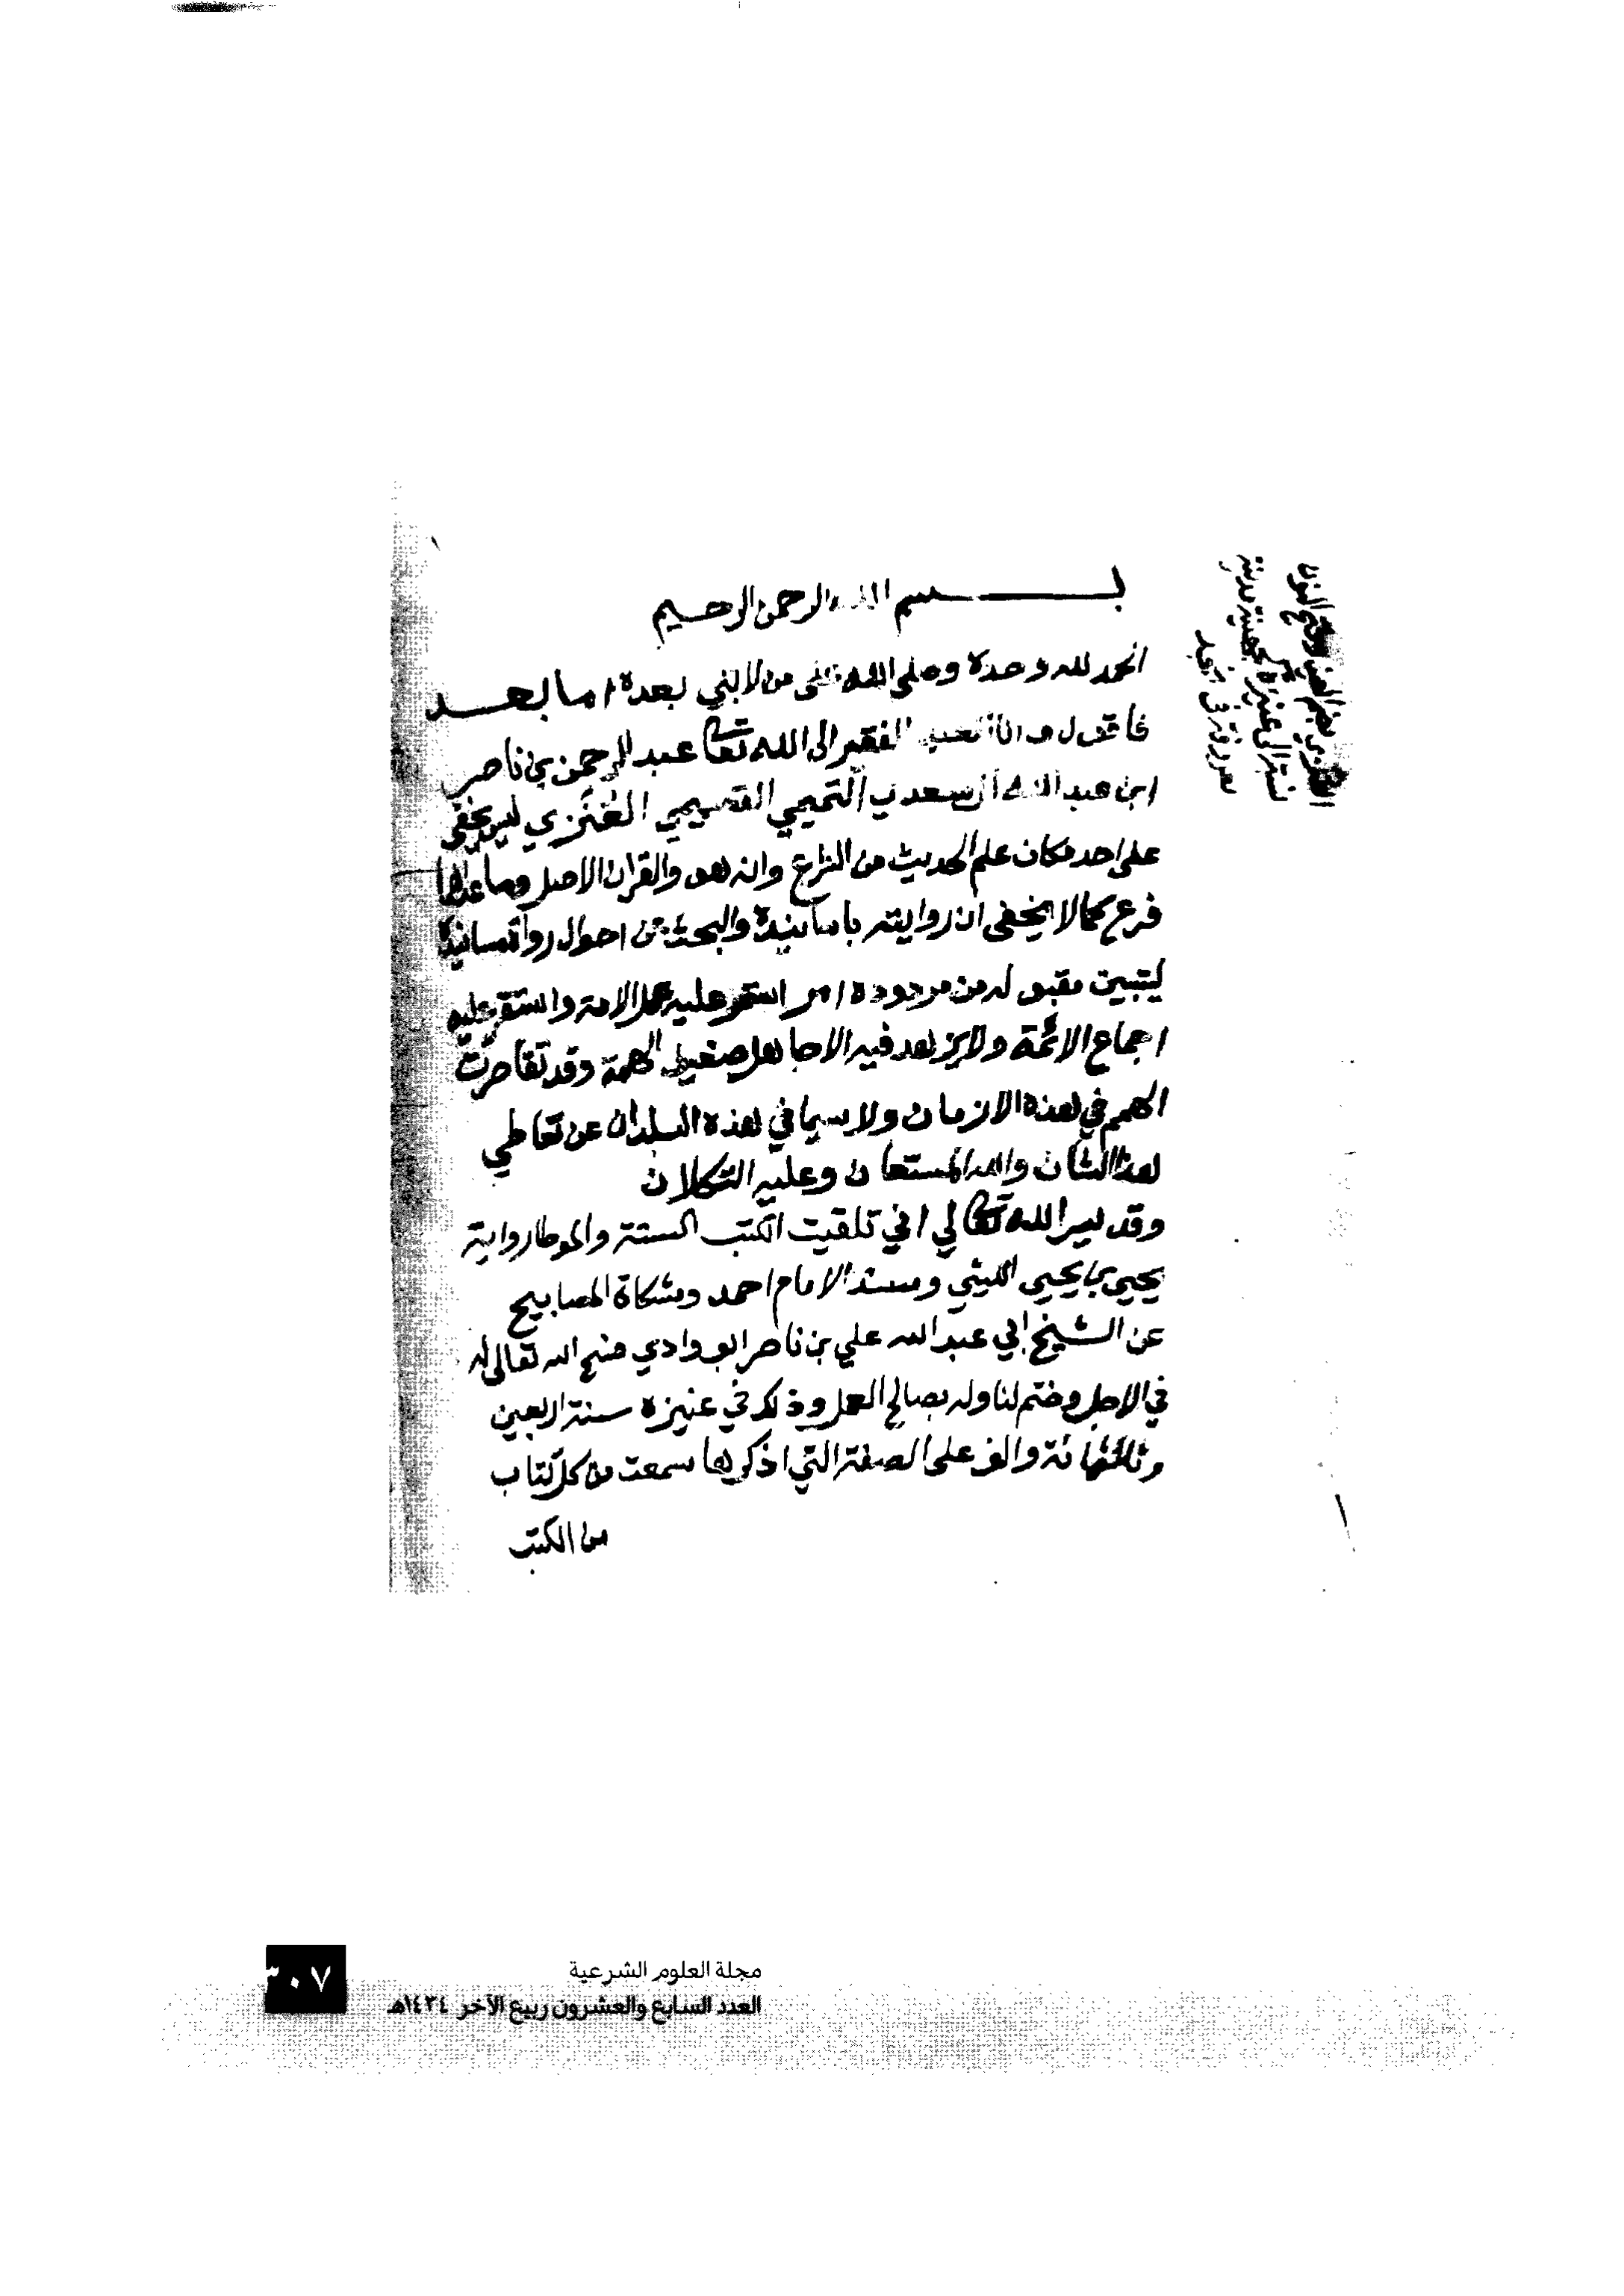 بسم الله الرحمن الرحيم
الحمد لله وحده وصلى الله على من لا نبي بعده اما بعد
فاقول وانا العبد الفقير الى الله تعا عبد الرحمن بن ناصر
ابن عبد الله ال سعدي التميمي القصيمي العُنَزي ليس يخفى
على احد مكان علم الحديث من الشرع وانه هو والقران الاصل وما عداهما
فرع كما لا يخفى ان روايته باسانيده والبحث عن احوال رواة مسانيده
ليتبين مقبوله من مردوده امر استمر عليه عمل الامة واستقر عليه
اجماع الائمة ولا يزهد فيه الا جاهل صغير الهمة وقد تقاصرت
الهمم في هذه الازمان ولا سيما في هذه البلدان عن تعاطي
هذا الشان والله المستعان وعليه التكلان
وقد يسر الله تعا لي اني تلقيت الكتب الستة والموطا رواية
يحيى بن يحيى الليثي ومسند الامام احمد ومشكاة المصابيح
عن الشيخ ابي عبد الله علي بن ناصر ابو وادي فسح الله تعالى له
في الاجل وختم لنا وله بصالح العمل وذلك في عنيزة سنة اربعين
وثلثمائة والف على الصفة التي اذكرها سمعت من كل كتاب
من الكتب
العنزي بضم العين وفتح النون
نسبة الى عنيزة
مجلة العلوم الشرعية
العدد السابع والعشرون ربيع الآخر ١٤٣٤هـ
٣٠٧